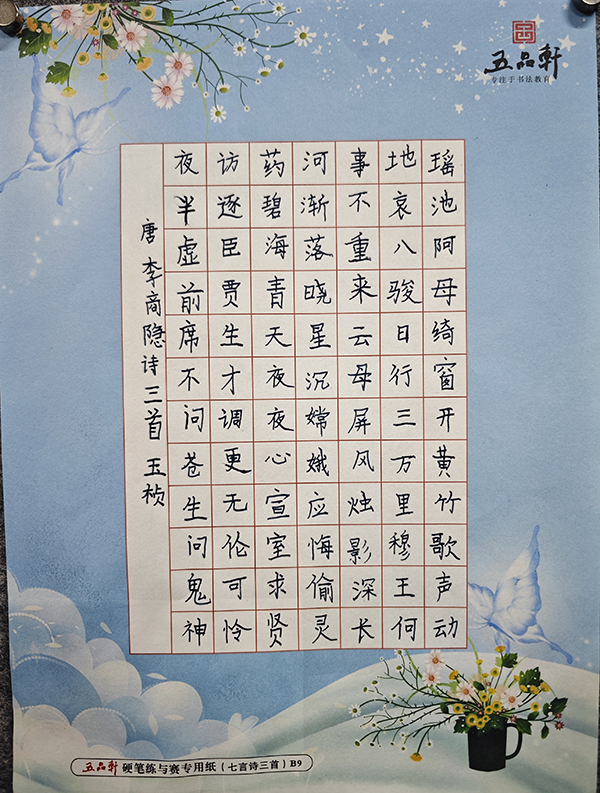 五品軒
专注于书法教育
瑶池阿母绮窗开黄竹歌声动
地哀八骏日行三万里穆王何
事不重来云母屏风烛影深长
河渐落晓星沉嫦娥应悔偷灵
药碧海青天夜夜心宣室求贤
访逐臣贾生才调更无伦可怜
夜半虚前席不问苍生问鬼神
唐李商隐诗三首 玉祯
五品軒 硬笔练与赛专用纸（七言诗三首）B9